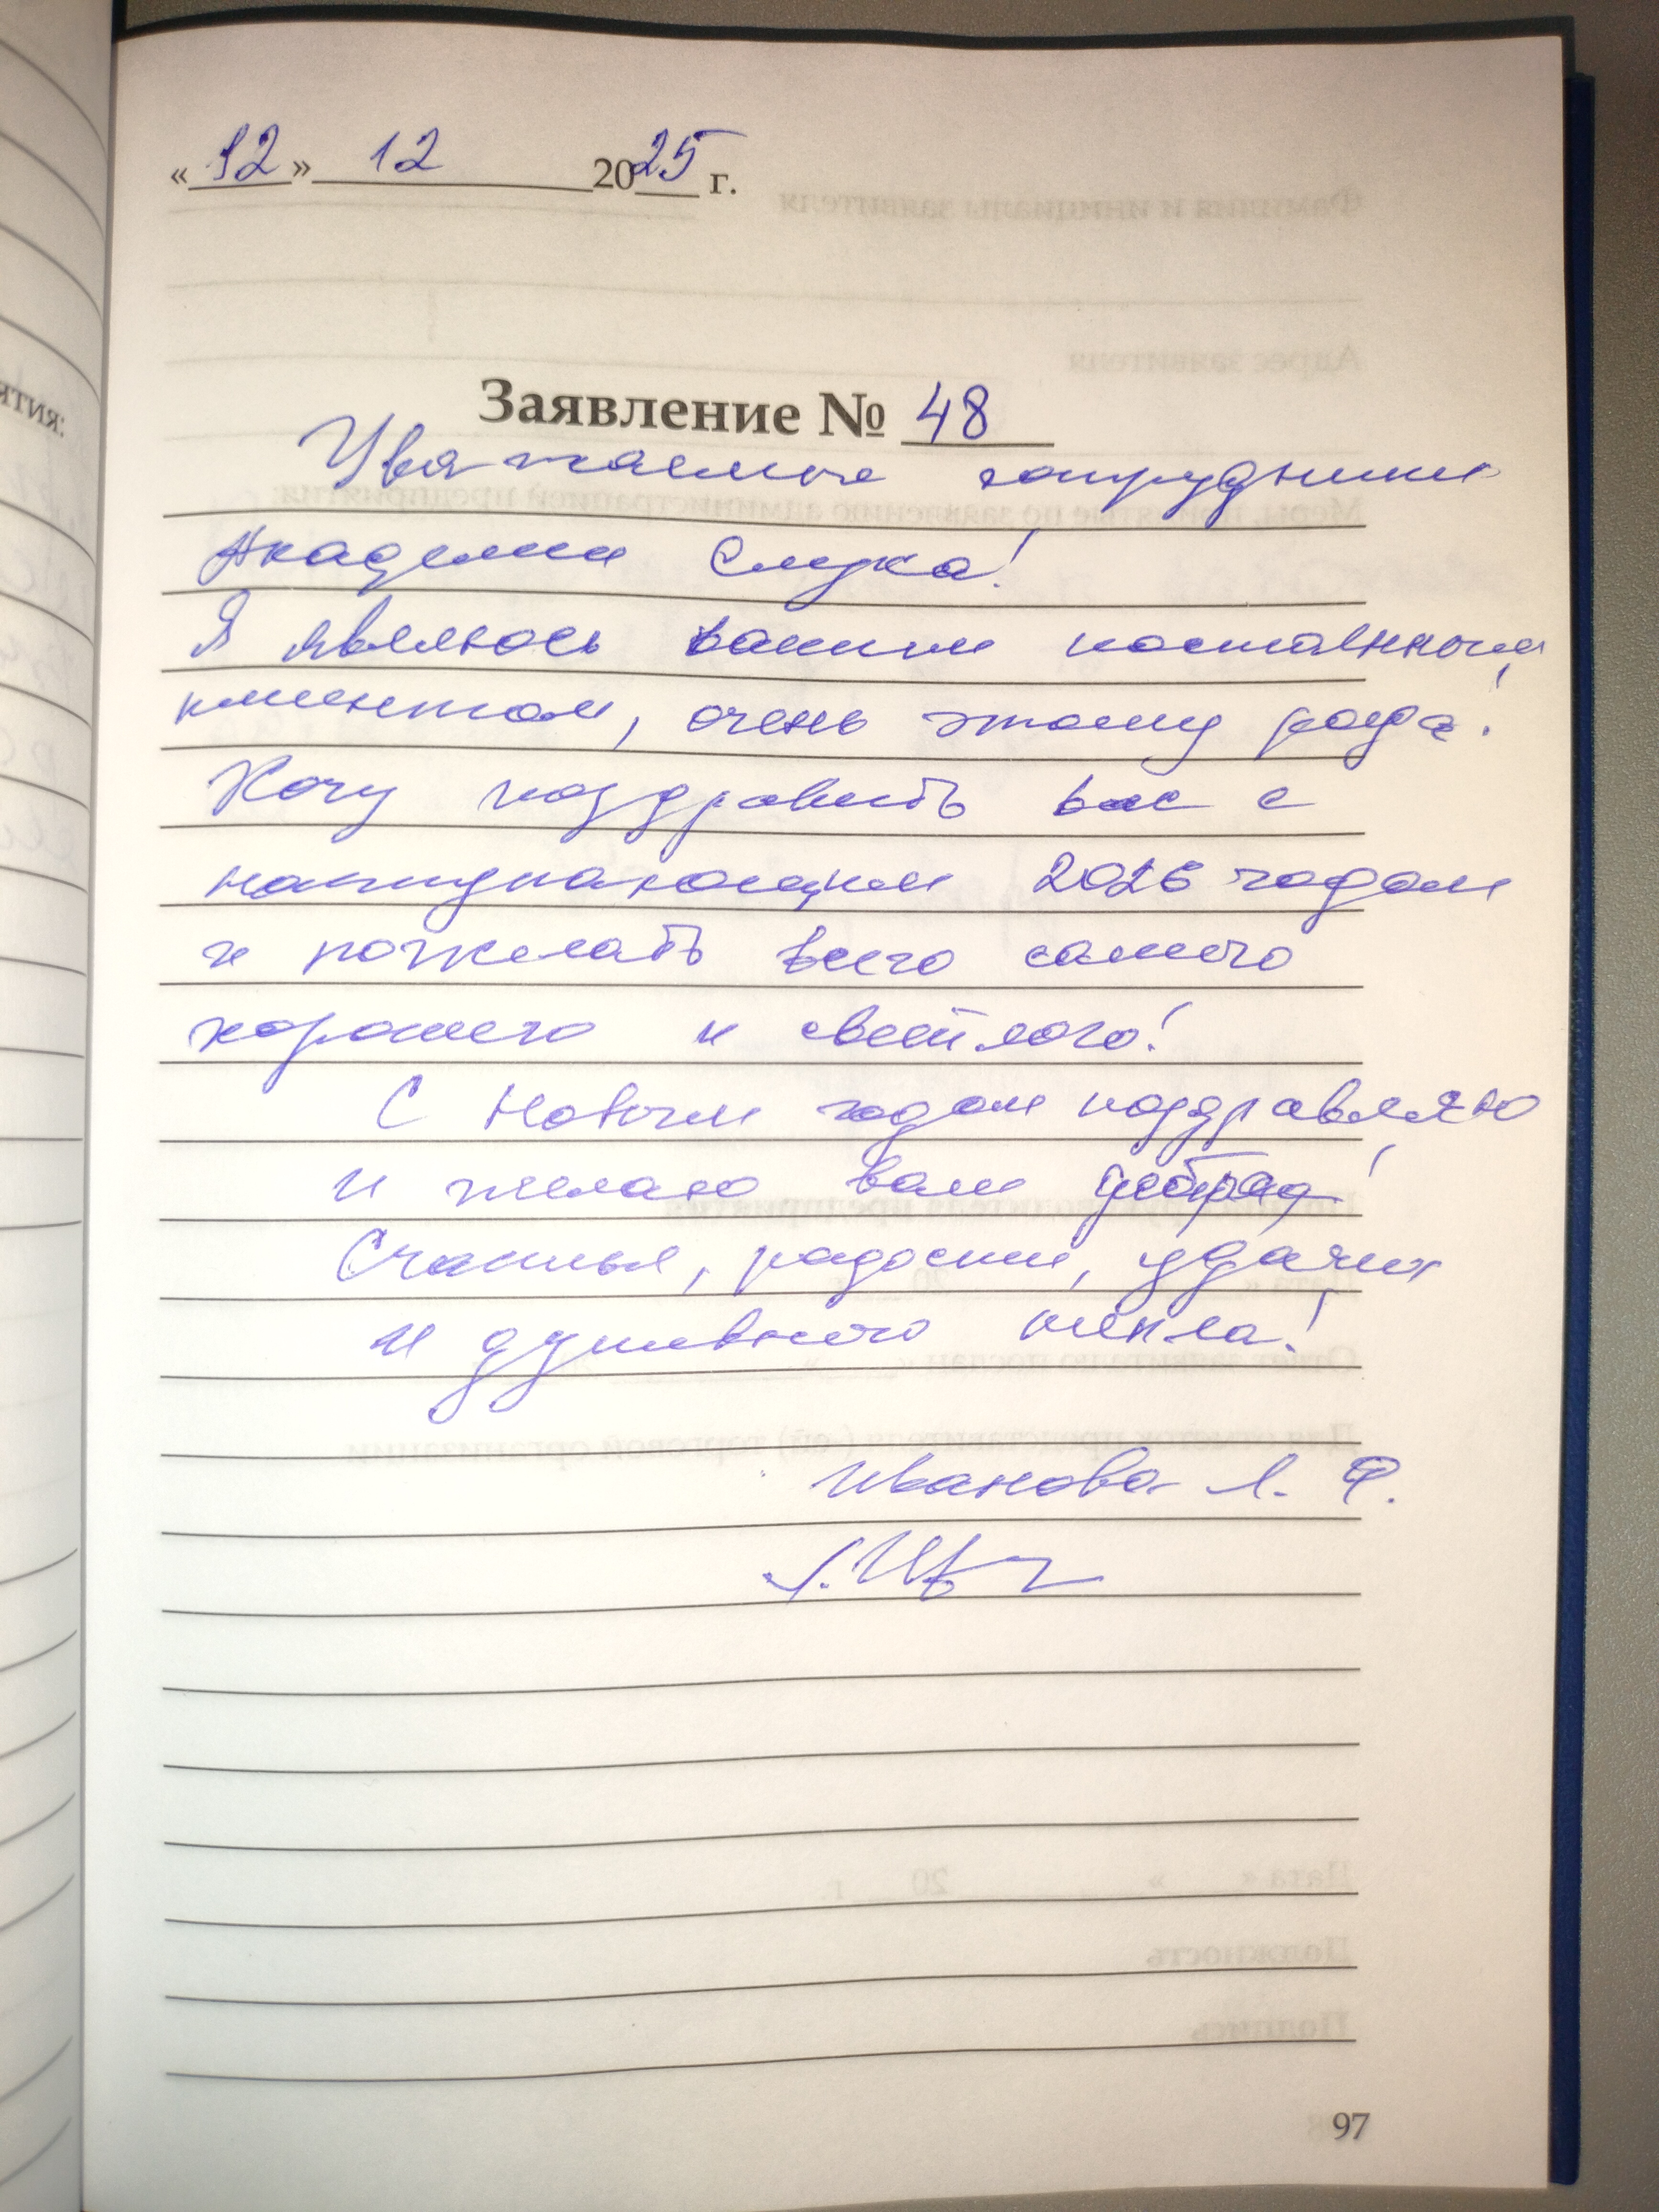 «12» 12 2025 г.
Заявление № 48
Уважаемые сотрудники
Академии Слуха!
Я являюсь вашим постоянным
клиентом, очень этому рада!
Хочу поздравить вас с
наступающим 2026 годом
и пожелать всего самого
хорошего и светлого!
С Новым годом поздравляю
и желаю вам добра!
Счастья, радости, удачи
и душевного тепла!
Иванова Л. Ф.
97